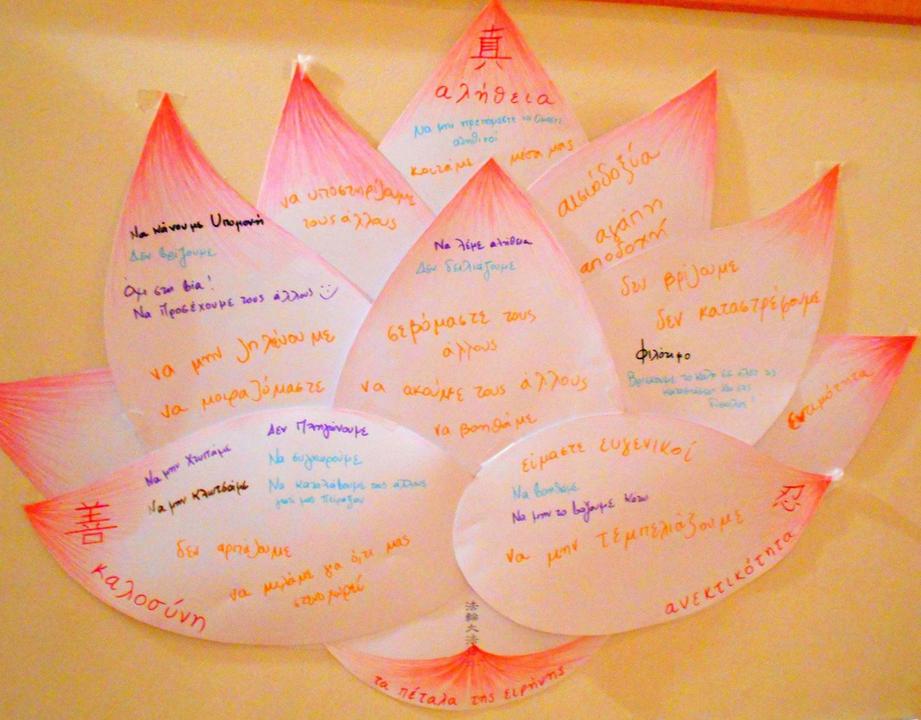 真
αλήθεια
Να μην ντρεπόμαστε να είμαστε
αληθινοί
κοιτάμε μέσα μας
να υποστηρίζουμε
τους άλλους
αισιόδοξία
αγάπη
αποδοχή
Να κάνουμε Υπομονή
Δεν βρίζουμε
Όχι στη βία!
Να Προσέχουμε τους άλλους
να μην ζηλεύουμε
να μοιραζόμαστε
Να λέμε αλήθεια
Δεν δειλιάζουμε
σεβόμαστε τους
άλλους
να ακούμε τους άλλους
να βοηθάμε
δεν βρίζουμε
δεν καταστρέφουμε
Φιλότιμο
Βρίσκουμε το καλό σε όλες τις
καταστάσεις και στις
εντιμότητα
Δεν Πληγώνουμε
Να μην Χτυπάμε
Να συγχωρούμε
Να μην κλωτσάμε
Να καταλάβουμε τους άλλους
γιατί μας Πείραξαν
善
καλοσύνη
δεν αρπάζουμε
να μιλάμε για ό,τι μας
στενοχωρεί
είμαστε ευγενικοί
Να βοηθάμε
Να μην το βάζουμε κάτω
να μην τεμπελιάζουμε
忍
ανεκτικότητα
法輪大法
τα πέταλα της ειρήνης